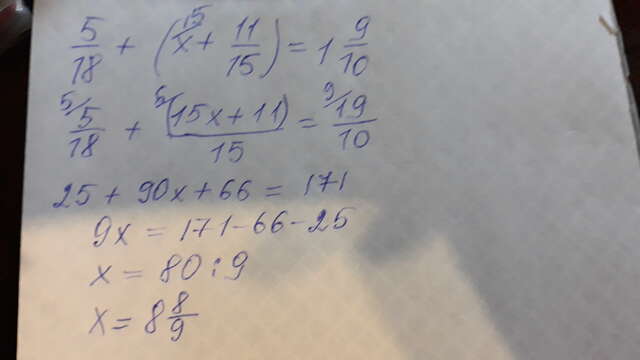 5/18 + (x + 11/15) = 1 9/10
5/ 5/18 + 6/ (15x + 11)/15 = 9/ 19/10
25 + 90x + 66 = 171
9x = 171 - 66 - 25
x = 80 : 9
x = 8 8/9